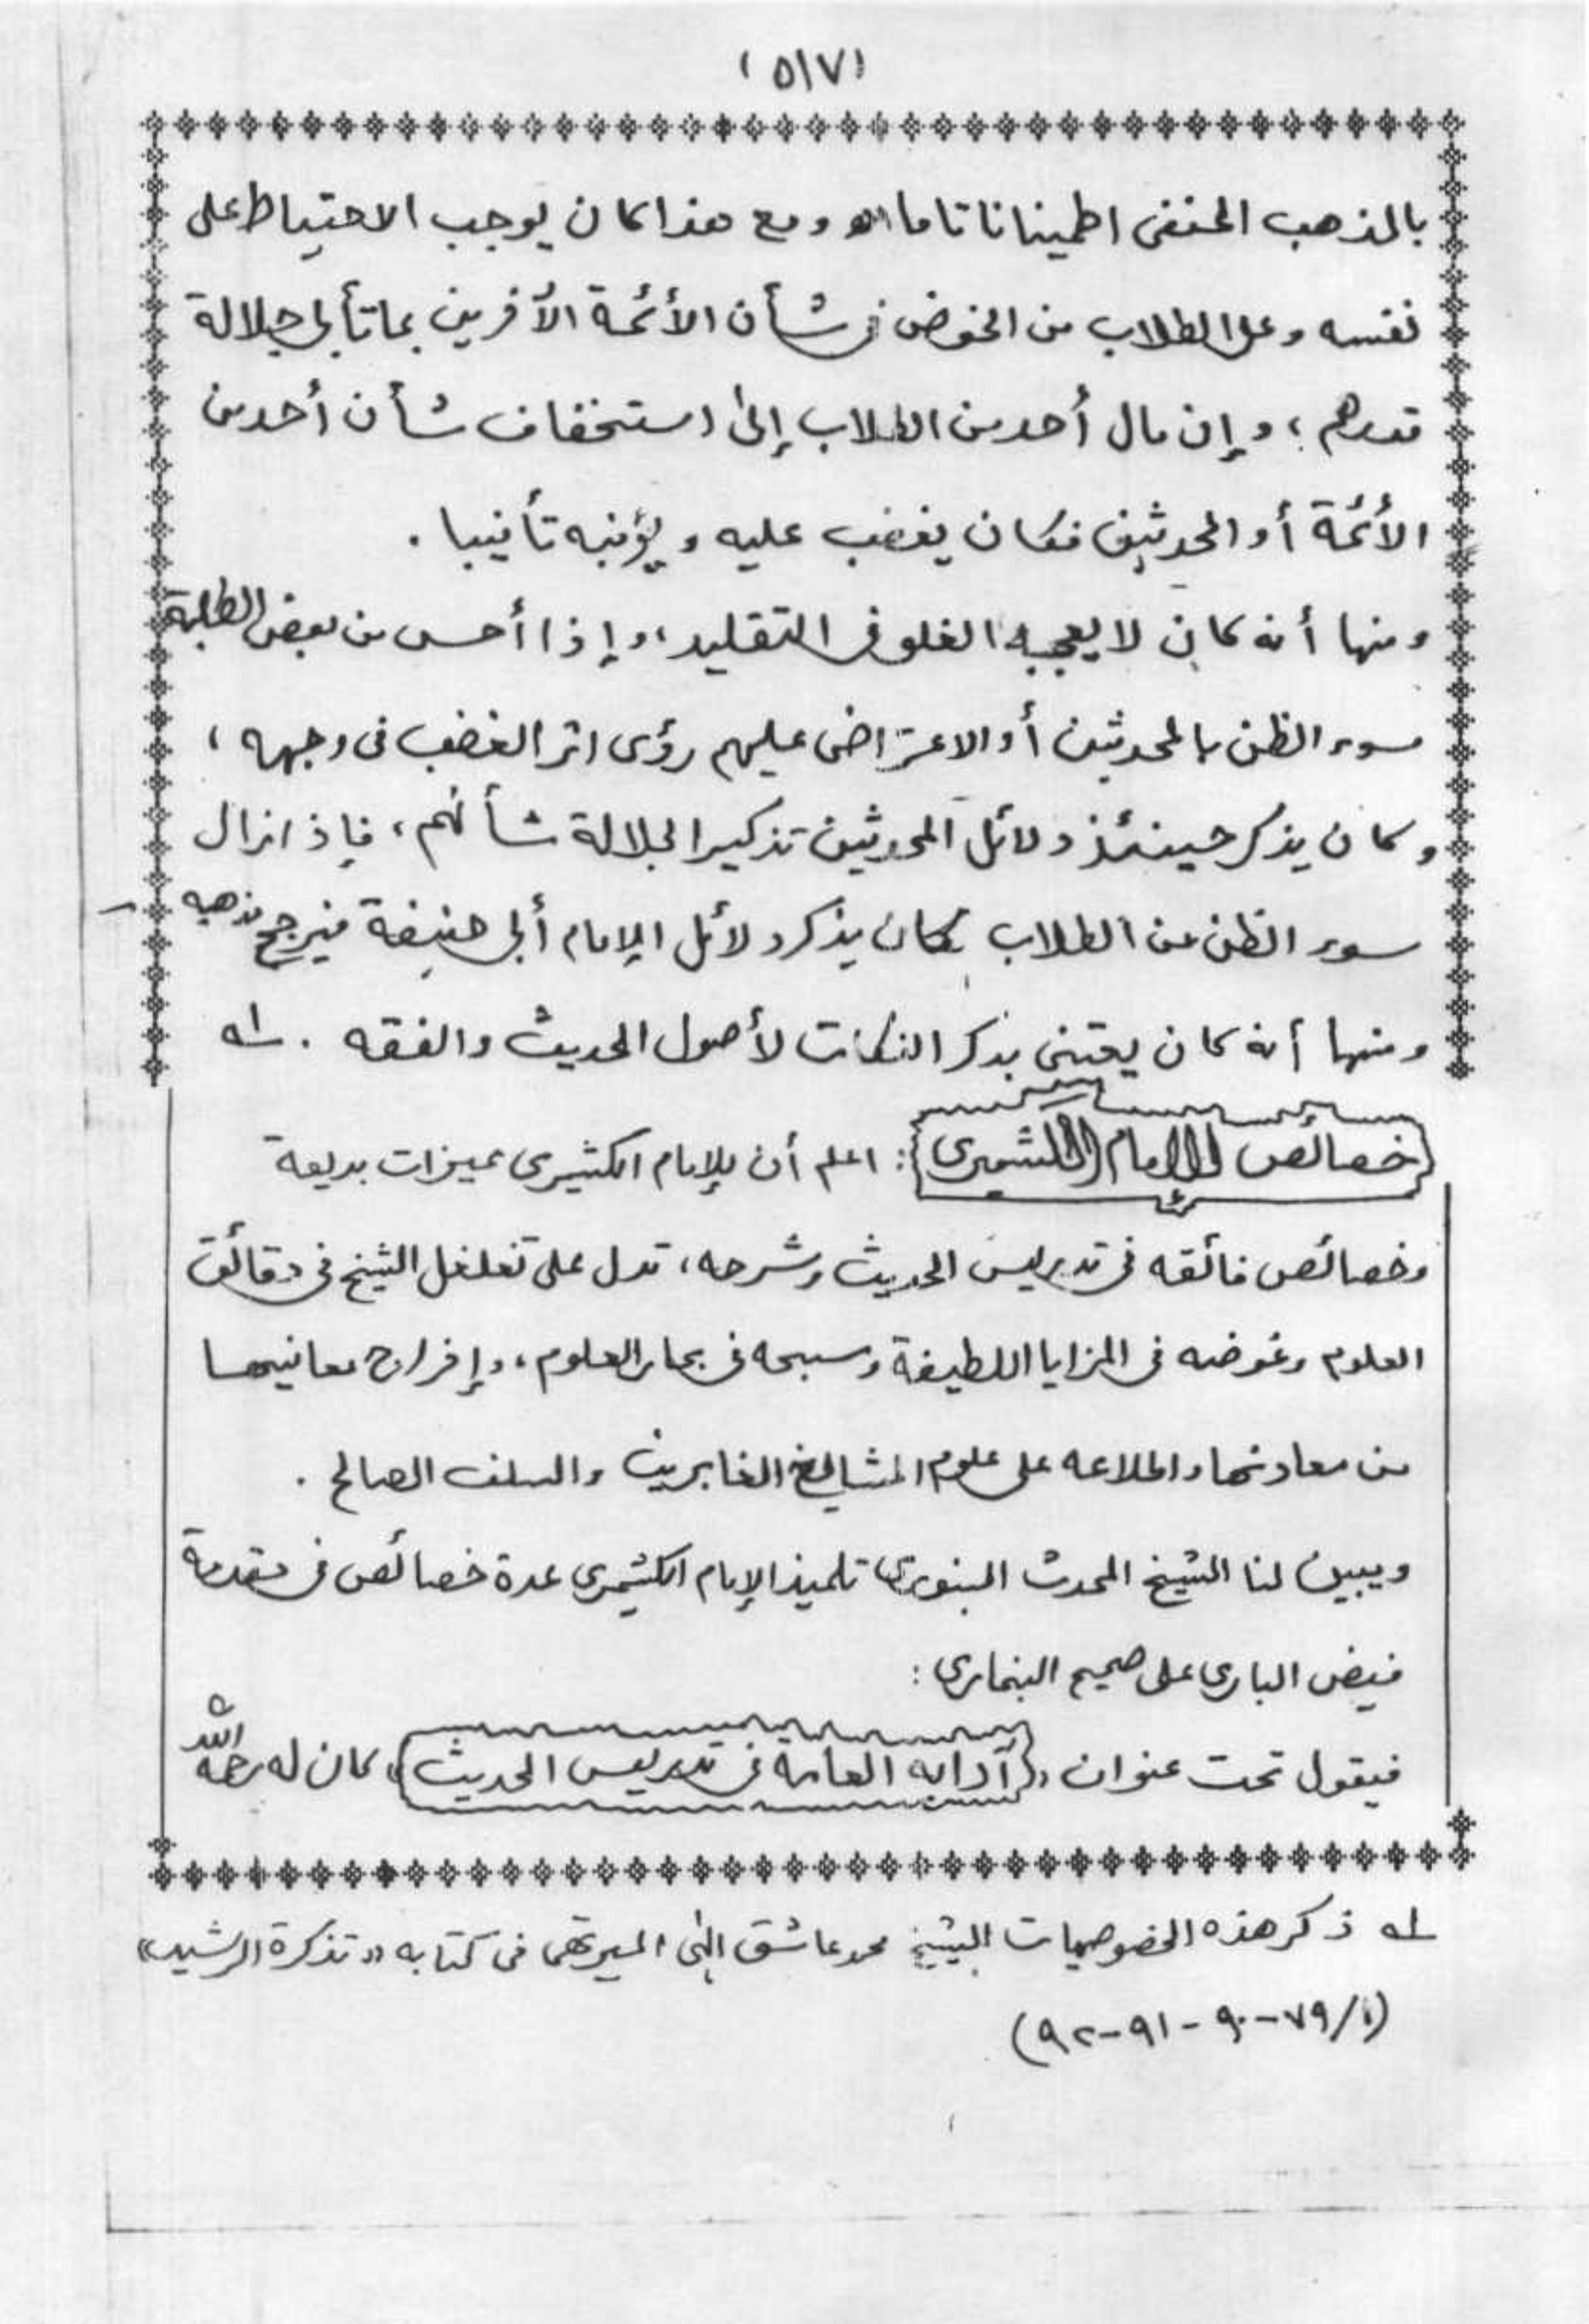 (٥١٧)
بالمذهب الحنفى اطمينانا تاما ومع هذا كان يوجب الاحتياط على
نفسه وعلى الطلاب من الخوض فى شأن الأئمة الآخرين بما تأبى جلالة
قدرهم، وإن مال أحد من الطلاب إلى استخفاف شأن أحد من
الأئمة أو المحدثين فكان يغضب عليه ويؤنبه تأنيبا .
ومنها أنه كان لا يعجبه الغلو فى التقليد، وإذا أحس من بعض الطلبة
سوء الظن بالمحدثين أو الاعتراض عليهم رؤى اثر الغضب فى وجهه ،
وكان يذكر حينئذ دلائل المحدثين تذكيرا لجلالة شأنهم، فإذا زال
سوء الظن عن الطلاب كان يذكر دلائل الإمام أبى حنيفة فيرجح مذهبه
ومنها أنه كان يعتنى بذكر النكات لأصول الحديث والفقه . له
خصائص الإمام الكشميرى : اعلم أن للإمام الكشيرى ميزات بديعة
وخصائص فائقه فى تدريس الحديث وشرحه، تدل على تغلغل الشيخ فى دقائق
العلوم وغوضه فى المزايا اللطيفة وسبحه فى بحار العلوم، وإخراج معانيها
من معادنها واطلاعه على علوم المشايخ الغابرين والسلف الصالح .
ويبين لنا الشيخ المحدث البنورى تلميذ الإمام الكشميرى عدة خصائص فى مقدمة
فيض البارى على صحيح البخارى :
فيقول تحت عنوان « آدابه العامة فى تدريس الحديث » كان له رحمه الله
له ذكر هذه الخصوصيات الشيخ محمد عاشق إلٰهى الميرتهى فى كتابه «تذكرة الرشيد»
(١/٧٩-٩٠-٩١-٩٢)